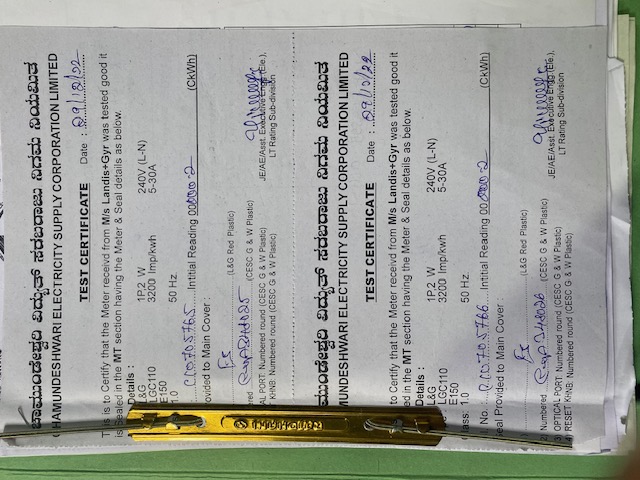 ಚಾಮುಂಡೇಶ್ವರಿ ವಿದ್ಯುತ್ ಸರಬರಾಜು ನಿಗಮ ನಿಯಮಿತ
CHAMUNDESHWARI ELECTRICITY SUPPLY CORPORATION LIMITED
TEST CERTIFICATE
Date : 29/12/22
This is to Certify that the Meter receivd from M/s Landis+Gyr was tested good it
is Sealed in the MT section having the Meter & Seal details as below.
Details :
L&G 1P.2 W 240V (L-N)
LGC110 3200 Imp/kwh 5-30A
E150
1.0 50 Hz.
Intitial Reading 00 (CkWh)
rovided to Main Cover :
(L&G Red Plastic)
ered (CESC G & W Plastic)
AL PORT: Numbered round (CESC G & W Plastic)
KHNB: Numbered round (CESC G & W Plastic)
JE/AE/Asst. Executive Engg (Ele.),
LT Rating Sub-division
ಮುಂಡೇಶ್ವರಿ ವಿದ್ಯುತ್ ಸರಬರಾಜು ನಿಗಮ ನಿಯಮಿತ
MUNDESHWARI ELECTRICITY SUPPLY CORPORATION LIMITED
TEST CERTIFICATE
Date : 29/12/22
to Certify that the Meter receivd from M/s Landis+Gyr was tested good it
ed in the MT section having the Meter & Seal details as below.
Details :
L&G 1P.2 W 240V (L-N)
LGC110 3200 Imp/kwh 5-30A
E150
lass: 1.0 50 Hz.
l. No. Intitial Reading 00 (CkWh)
eal Provided to Main Cover :
(L&G Red Plastic)
2) Numbered (CESC G & W Plastic)
3) OPTICAL PORT: Numbered round (CESC G & W Plastic)
4) RESET KHNB: Numbered round (CESC G & W Plastic)
JE/AE/Asst. Executive Engg (Ele.),
LT Rating Sub-division